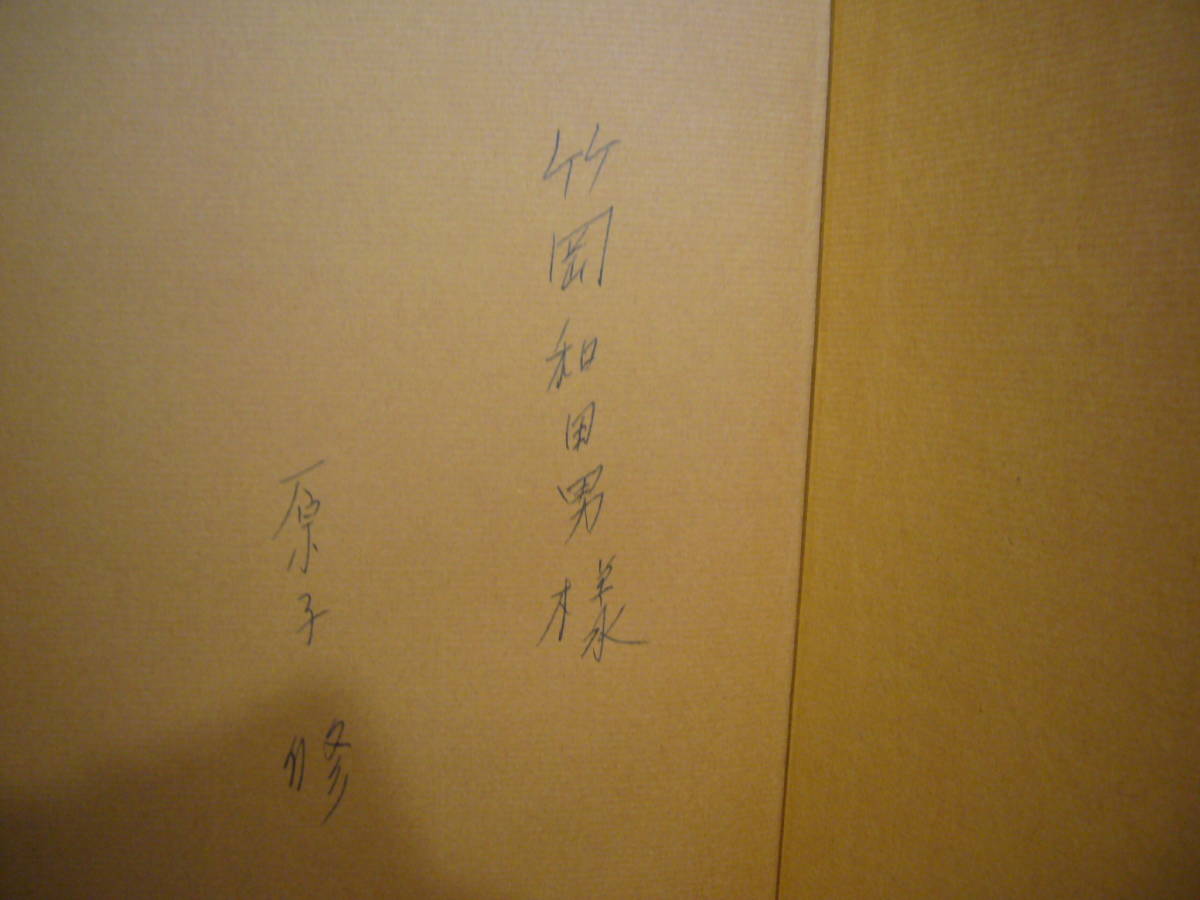 竹岡和田男様
原子 修